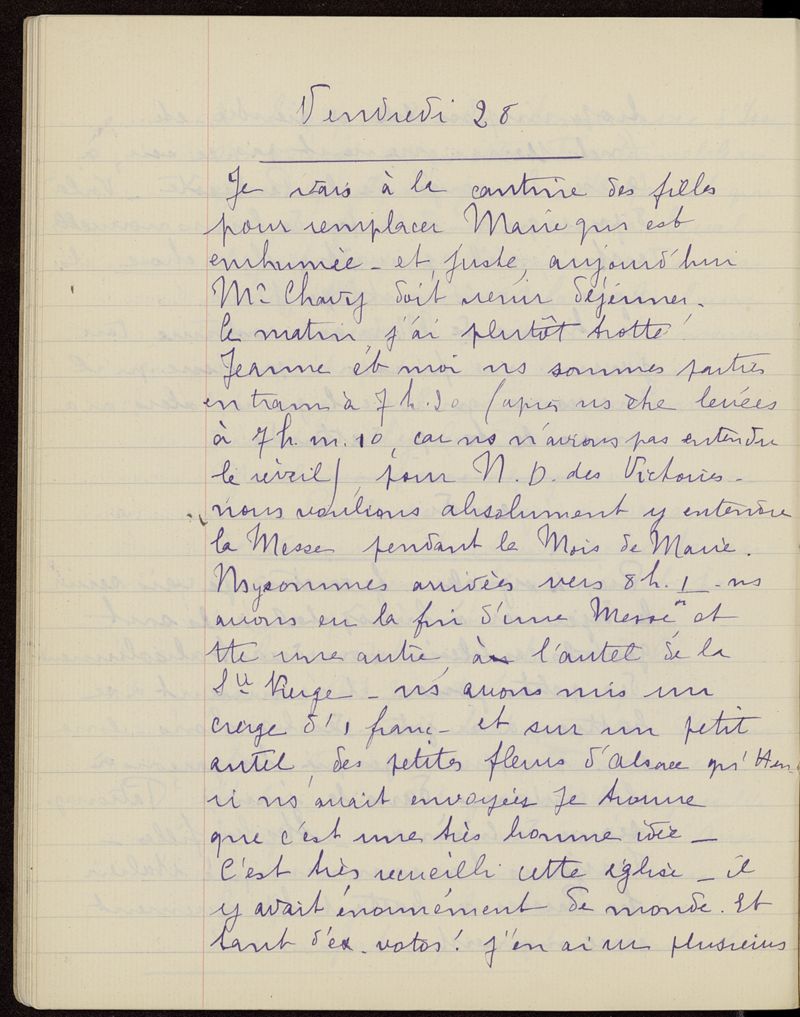 Vendredi 28
Je vais à la cantine des filles
pour remplacer Marie qui est
enrhumée - et, juste, aujourd'hui
Mr Chavy doit venir déjeuner.
Ce matin, j'ai plutôt trotté!
Jeanne et moi ns sommes parties
en tram à 7h.20 (après ns être levées
à 7h.m.10, car ns n'avions pas entendu
le réveil), pour N.D. des Victoires -
nous voulions absolument y entendre
la Messe pendant le Mois de Marie.
Ns y sommes arrivées vers 8h.1 - ns
avons eu la fin d'une Messe, et
tte une autre, à l'autel de la
Ste Vierge - ns avons mis un
cierge d'1 franc - et sur un petit
autel, des petites fleurs d'Alsace qu'Hen-
ri ns avait envoyées. Je trouve
que c'est une très bonne idée -
C'est très recueilli cette église - il
y avait énormément de monde. Et
tant d'ex-votos! j'en ai vu plusieurs